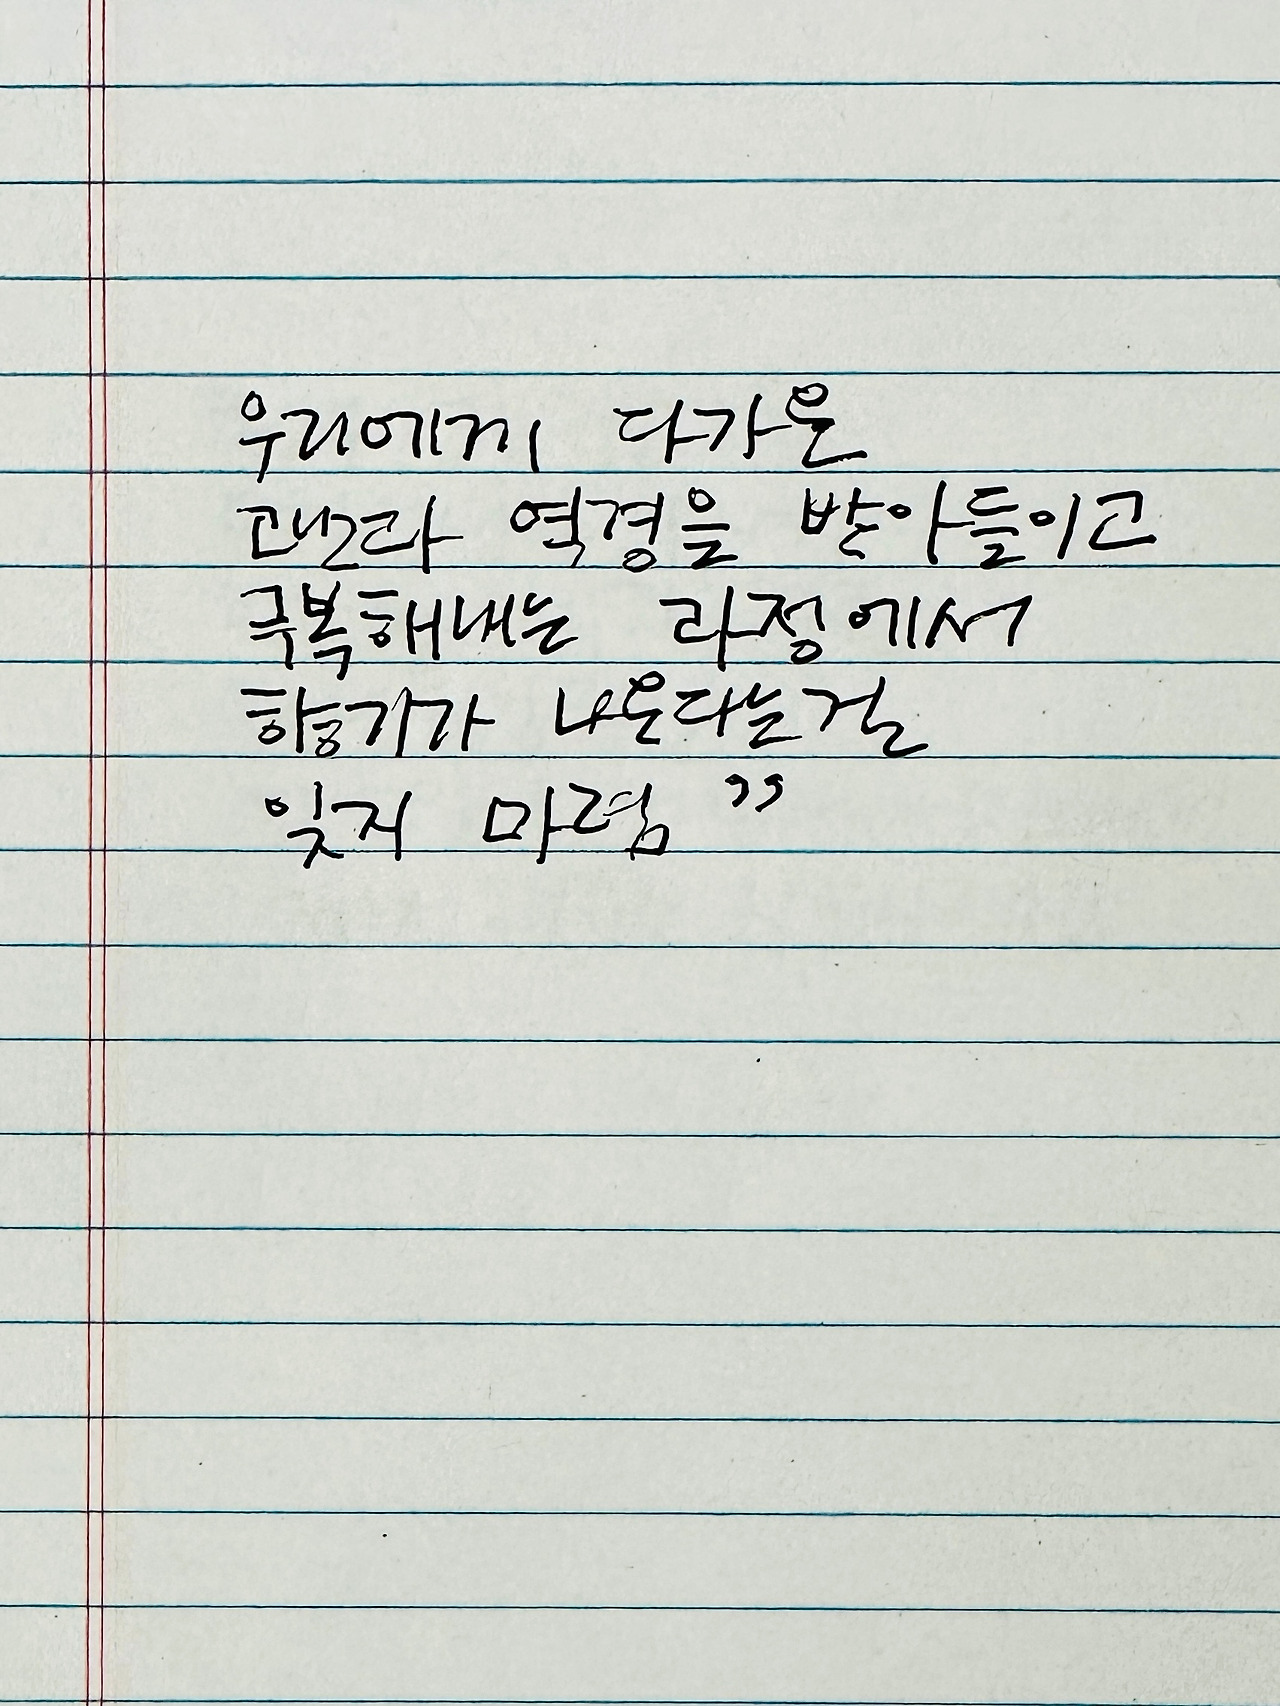 우리에게 다가온
고난과 역경을 받아들이고
극복해내는 과정에서
향기가 나온다는걸
잊지 마렴”